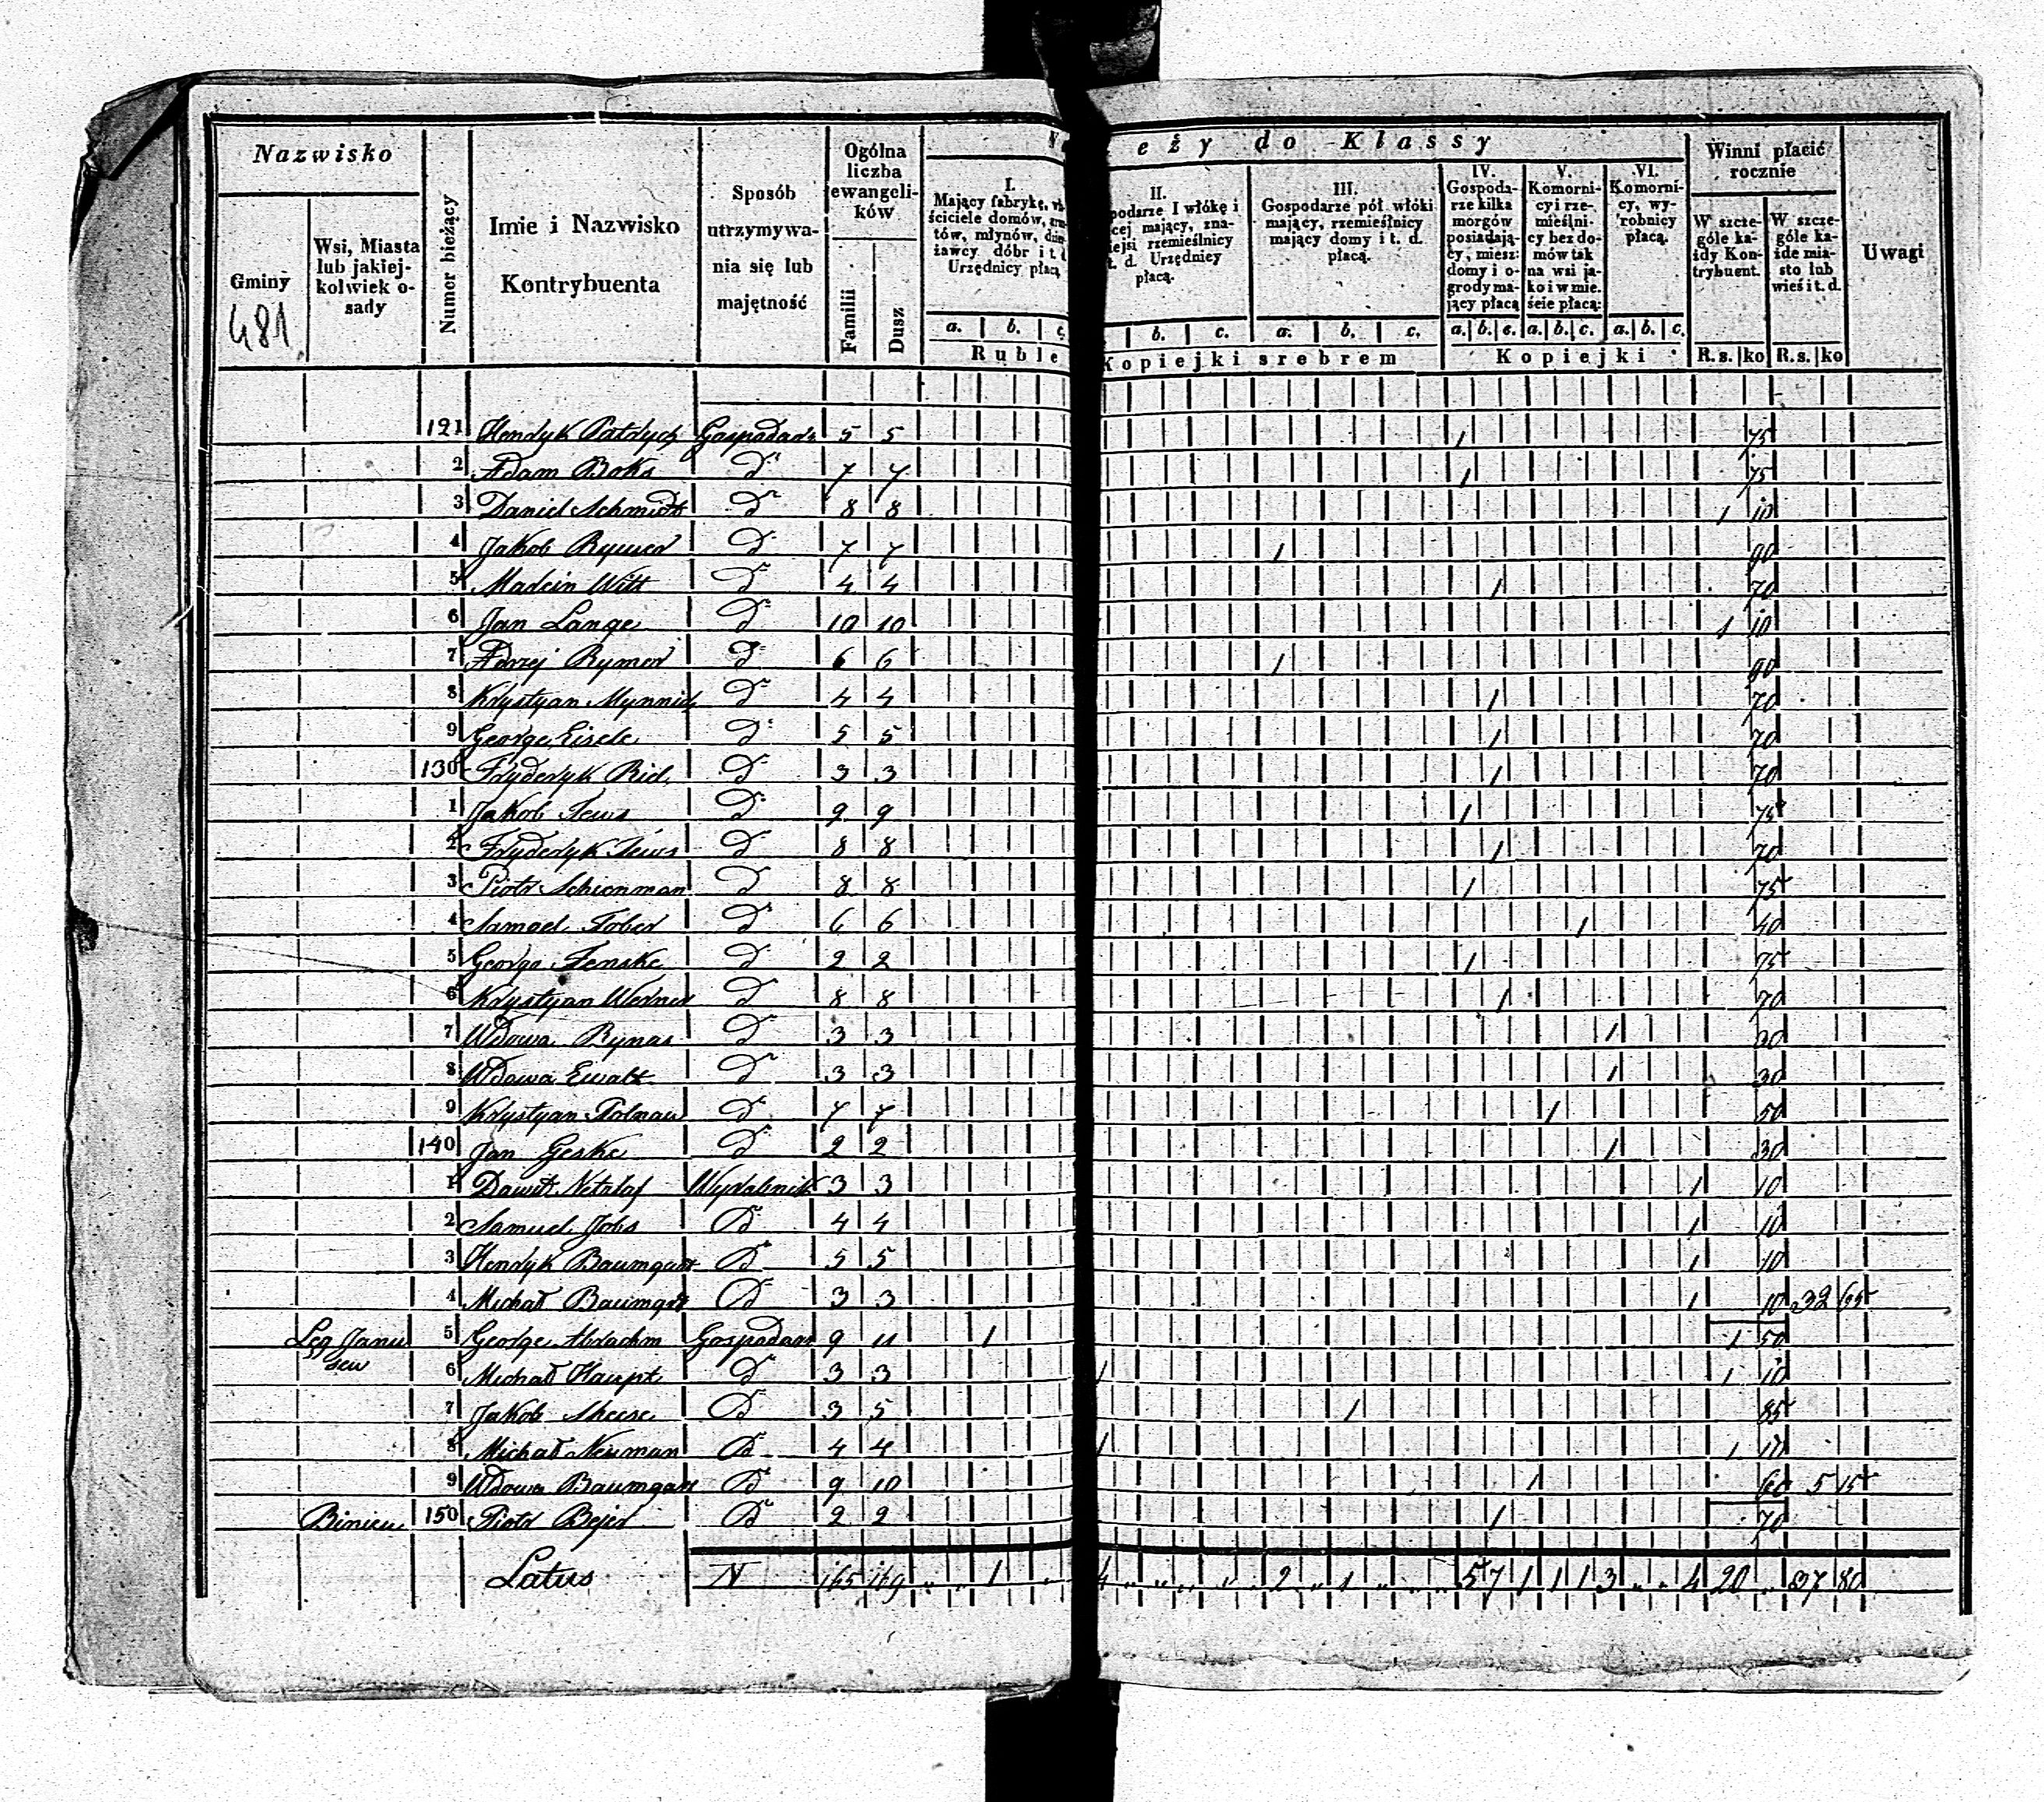 Nazwisko
Gminy
481
Wsi, Miasta lub jakiej-kolwiek o-sady
Numer bieżący
Imie i Nazwisko Kontrybuenta
Sposób utrzymywa-nia się lub majętność
Ogólna liczba ewangeli-ków
Familii Dusz
eży do Klassy
I. Mający fabrykę,
ściciele domów,
tów, młynów,
żawcy dóbr i t.
Urzędnicy płacą
a. b. c.
II.
podarze I włókę i
cej mający, zna-
iejsi rzemieślnicy
t. d. Urzędnicy
płacą.
b. c.
III.
Gospodarze pół włóki
mający, rzemieślnicy
mający domy i t. d.
płacą.
a. b. c.
Ruble Kopiejki srebrem
IV.
Gospoda-rze kilka morgów posiadają-cy, miesz: domy i o-grody ma-jący płacą
a. b. c.
V.
Komorni-cy i rze-mieślni-cy bez do-mów tak na wsi ja-ko i w mie.ście płacą:
a. b. c.
VI.
Komorni-cy, wy-robnicy płacą.
a. b. c.
Kopiejki
Winni płacić rocznie
W szcze-góle ka-żdy Kon-trybuent.
W szcze-góle ka-żde mia-sto lub wieś i t. d.
R.s. ko R.s. ko
Uwagi
121 Hendryk Patrych Gospodarz 5 5 1 75
2 Adam Boks d 7 7 1 75
3 Daniel Schmidt d 8 8 1 10
4 Jakob Rymer d 7 7 1 90
5 Marcin Witt d 4 4 1 70
6 Jan Lange d 10 10 1 10
7 Adrzej Rymer d 6 6 1 90
8 Krystyan d 4 4 1 70
9 George Eisele d 5 5 1 70
130 Fryderyk Riel d 3 3 1 70
1 Jakob Tews d 9 9 1 75
2 Fryderyk Tews d 8 8 1 70
3 Piotr Schienman d 8 8 1 75
4 Samoel Tober d 6 6 1 40
5 George Fenske d 2 2 1 75
6 Krystyan Werner d 8 8 1 70
7 Wdowa Rynas d 3 3 1 30
8 Wdowa Ewalt d 3 3 1 30
9 Krystyan d 7 7 1 50
140 Jan Geske d 2 2 1 30
1 Dawit Netzlaf 3 3 1 10
2 Samuel Jobs d 4 4 1 10
3 Hendryk Baumgart d 5 5 1 10
4 Michał Baumgart d 3 3 1 10 32 65
Łęg 5 George Abrachm Gospodarz 9 11 1 1 50
6 Michał Haupt d 3 3 1 1 10
7 Jakob d 3 5 1 85
8 Michał Neuman d 4 4 1 1 10
9 Wdowa Baumgart d 9 10 1 60 5 15
150 Piotr Bejer d 2 2 1 70
Latus N 165 169 1 4 2 1 5 7 1 1 1 3 4 20 37 80